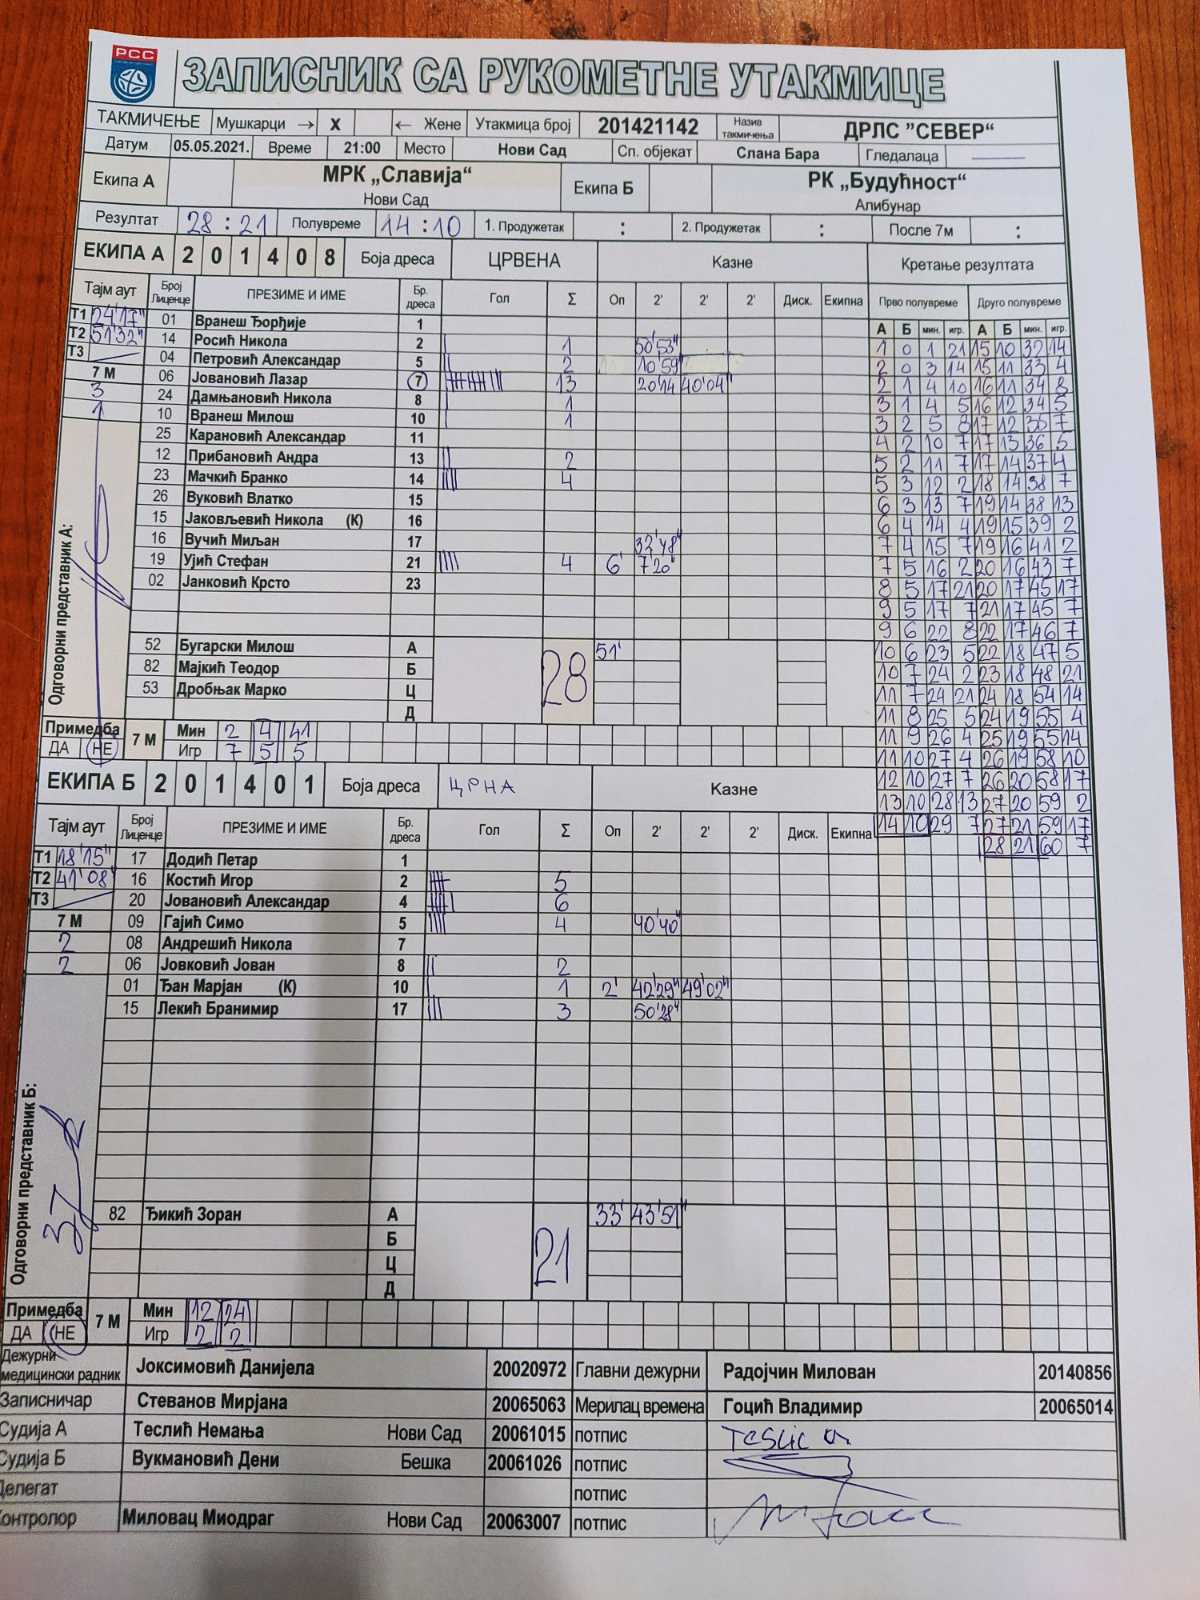 РСС
ЗАПИСНИК СА РУКОМЕТНЕ УТАКМИЦЕ
ТАКМИЧЕЊЕ Мушкарци → X ← Жене Утакмица број 201421142 Назив такмичења ДРЛС "СЕВЕР“
Датум 05.05.2021. Време 21:00 Место Нови Сад Сп. објекат Слана Бара Гледалаца
Екипа А МРК „Славија“ Нови Сад Екипа Б РК „Будућност“ Алибунар
Резултат 28 : 21 Полувреме 14 : 10 1. Продужетак : 2. Продужетак : После 7м :
ЕКИПА А 2 0 1 4 0 8 Боја дреса ЦРВЕНА Казне Кретање резултата
Тајм аут Број Лиценце ПРЕЗИМЕ И ИМЕ Бр. дреса Гол Σ Оп 2' 2' 2' Диск. Екипна Прво полувреме Друго полувреме
А Б мин. игр. А Б мин. игр.
Т1 24'17" 01 Вранеш Ђорђије 1
Т2 51'32" 14 Росић Никола 2 1 50'53"
Т3 04 Петровић Александар 5 2 10'59"
7 М 06 Јовановић Лазар 7 13 20'14 40'04"
3 24 Дамњановић Никола 8 1
1 10 Вранеш Милош 10 1
25 Карановић Александар 11
12 Прибановић Андра 13 2
23 Мачкић Бранко 14 4
26 Вуковић Влатко 15
15 Јаковљевић Никола (К) 16
16 Вучић Миљан 17 32'48"
19 Ујић Стефан 21 4 6' 7'20"
02 Јанковић Крсто 23
52 Бугарски Милош А 51'
82 Мајкић Теодор Б 28
53 Дробњак Марко Ц
Д
Одговорни представник А:
1 0 1 21 15 10 32 14
2 0 3 14 15 11 33 4
2 1 4 10 16 11 34 8
3 1 4 5 16 12 34 5
3 2 5 8 17 12 36 7
4 2 10 7 17 13 36 5
5 2 11 7 17 14 37 4
5 3 12 2 18 14 38 7
6 3 13 7 19 14 38 13
6 4 14 4 19 15 39 2
7 4 15 7 19 16 41 2
7 5 16 2 20 16 43 7
8 5 17 21 20 17 45 17
9 5 17 7 21 17 45 7
9 6 22 8 22 17 46 7
10 6 23 5 22 18 47 5
10 7 24 2 23 18 48 21
11 7 24 21 24 18 54 14
11 8 25 5 24 19 55 4
11 9 26 4 25 19 55 14
11 10 27 4 26 19 58 10
12 10 27 7 26 20 58 17
13 10 28 13 27 20 59 2
14 10 29 7 27 21 59 17
28 21 60 7
Примедба ДА НЕ 7 М Мин 2 4 41
Игр 7 5 5
ЕКИПА Б 2 0 1 4 0 1 Боја дреса ЦРНА Казне
Тајм аут Број Лиценце ПРЕЗИМЕ И ИМЕ Бр. дреса Гол Σ Оп 2' 2' 2' Диск. Екипна
Т1 18'15" 17 Додић Петар 1
Т2 41'08" 16 Костић Игор 2 5
Т3 20 Јовановић Александар 4 6
7 М 09 Гајић Симо 5 4 40'40"
2 08 Андрешић Никола 7
2 06 Јовковић Јован 8 2
01 Ђан Марјан (К) 10 1 2' 42'29" 49'02"
15 Лекић Бранимир 17 3 50'28"
Одговорни представник Б:
82 Ђикић Зоран А 33' 43'51"
Б 21
Ц
Д
Примедба ДА НЕ 7 М Мин 12 24
Игр 2 2
Дежурни медицински радник Јоксимовић Данијела 20020972 Главни дежурни Радојчин Милован 20140856
Записничар Стеванов Мирјана 20065063 Мерилац времена Гоцић Владимир 20065014
Судија А Теслић Немања Нови Сад 20061015 потпис
Судија Б Вукмановић Дени Бешка 20061026 потпис
Делегат потпис
Контролор Миловац Миодраг Нови Сад 20063007 потпис